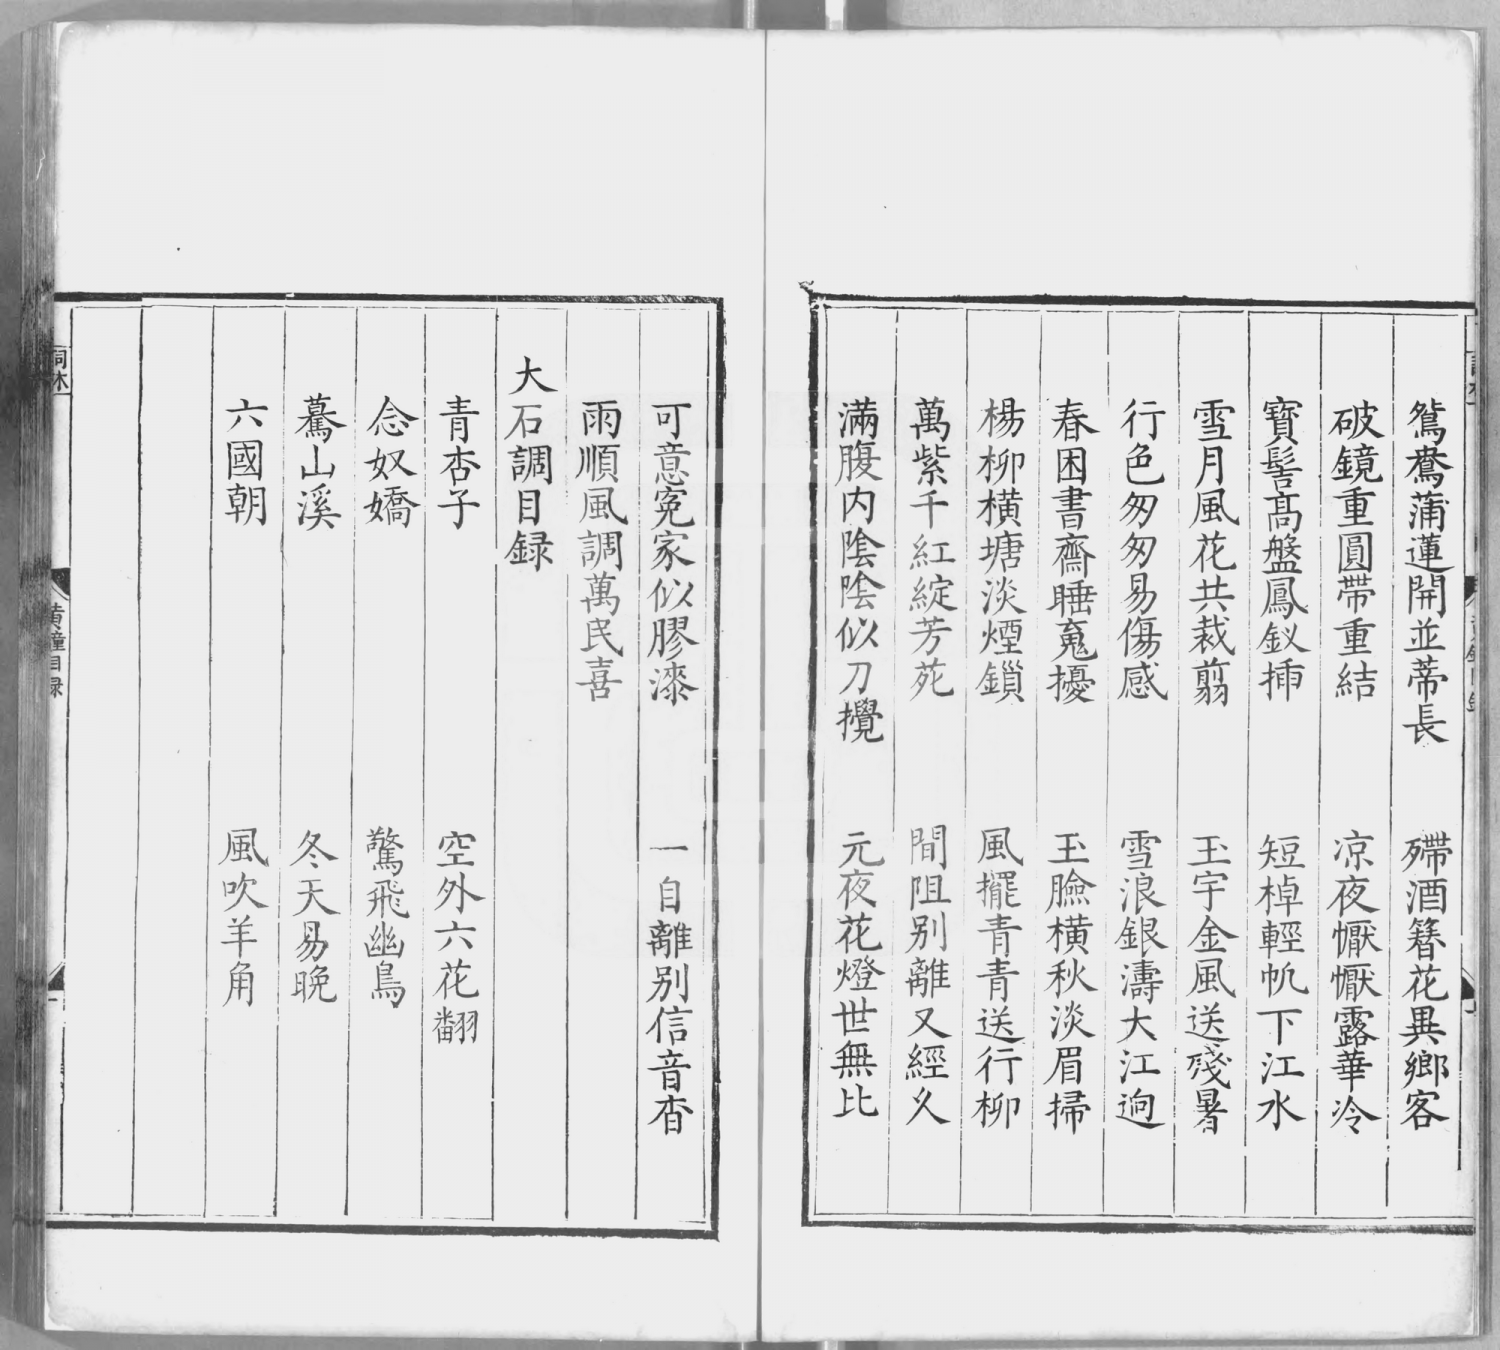 鴛鴦蒲蓮開並蒂長　殢酒簪花異鄉客
破鏡重圓帶重結　凉夜懨懨露華冷
寳髻髙盤鳳釵揷　短棹輕帆下江水
雪月風花共裁剪　玉宇金風送殘暑
行色匆匆易傷感　雪浪銀濤大江逈
春困書齋睡䰟擾　玉臉橫秋淡眉掃
楊柳横塘淡煙鎖　風擺青青送行柳
萬紫千紅綻芳苑　間阻别離又經乆
滿腹内陰陰似刀攪　元夜花燈世無比
可意寃家似膠漆　一自離别信音杳
雨順風調萬民喜
大石調目録
青杏子　空外六花翻
念奴嬌　驚飛幽鳥
驀山溪　冬天易晩
六國朝　風吹羊角
詞林
黄鐘目録